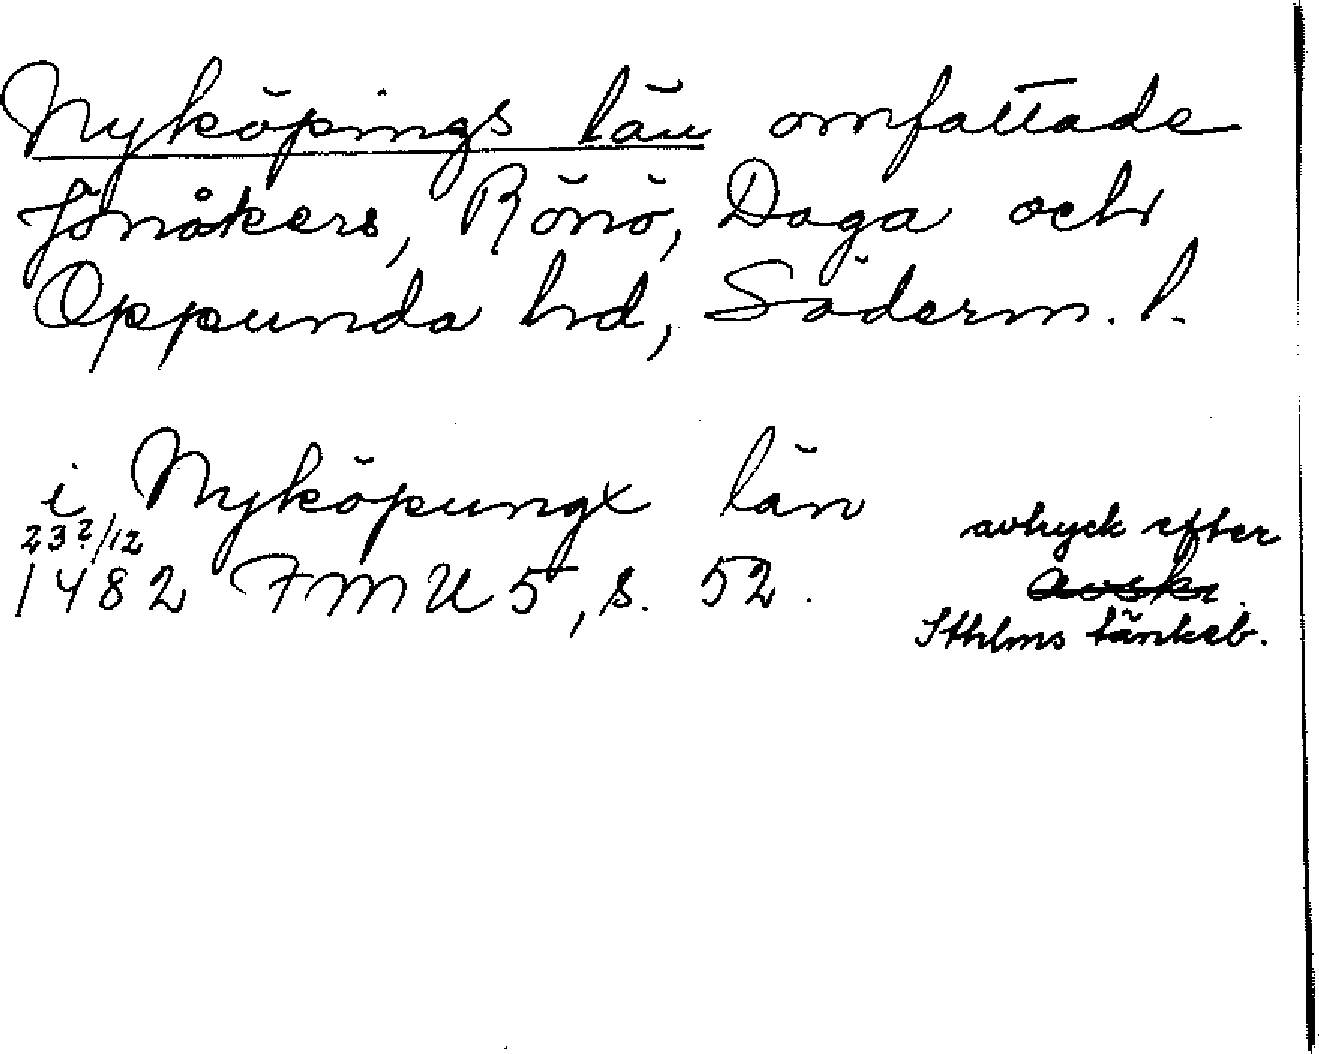 Nyköpings län omfattade
Jönåkers, Rönö, Daga och
Oppunda hd, Söderm. l.
i Nyköpungx län
23?/12
1482 FMU 5, s. 52.
avtryck efter
avskr.
Sthlms tänkeb.